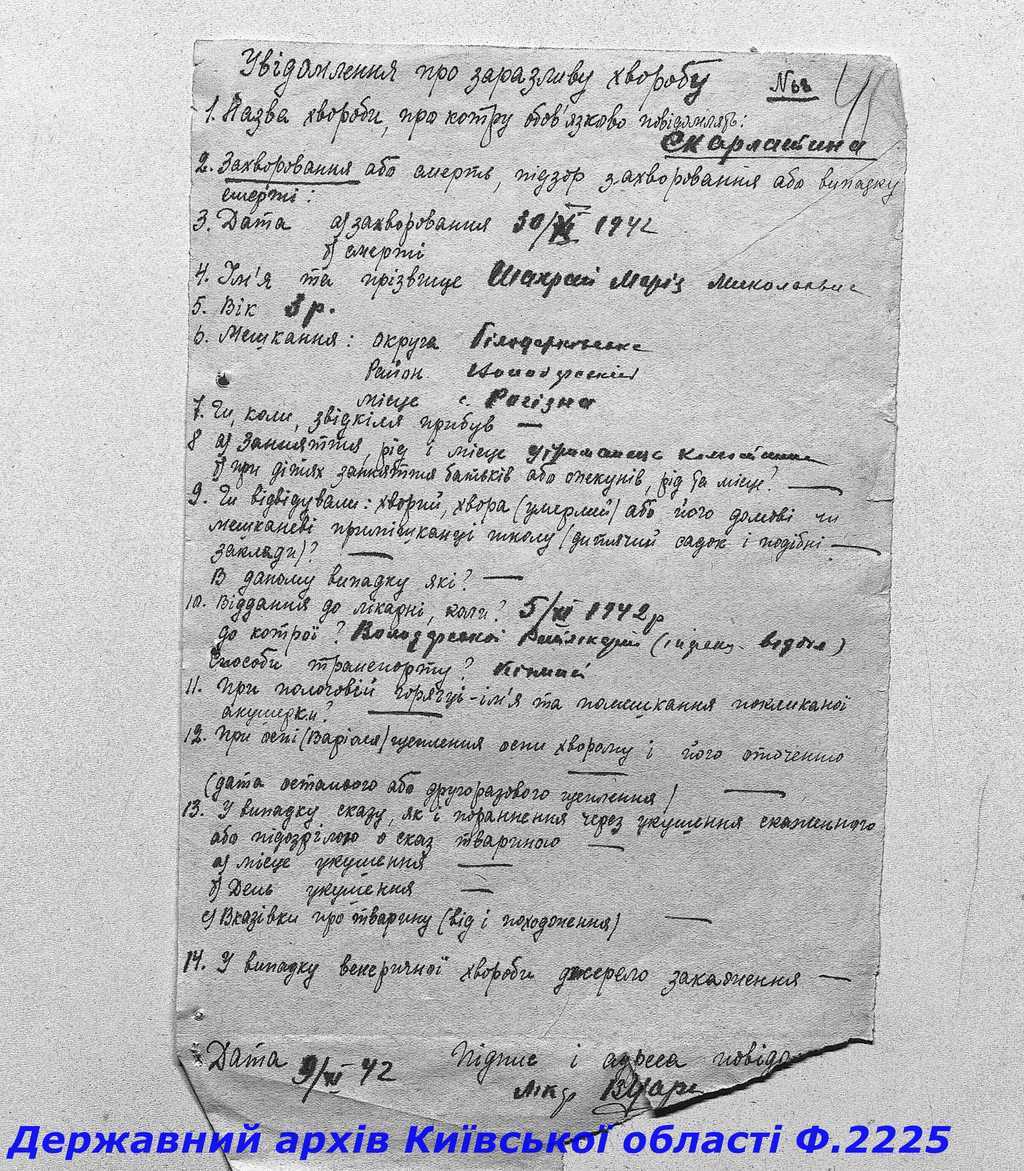 Увідомлення про заразливу хворобу
1. Назва хвороби, про котру обов'язково повідомлять:
Скарлатина
2. Захворовання або смерть, підзор захворовання або випадку
смерті:
3. Дата а) захворовання 30/XI 1942
б) смерті
4. Ім'я та прізвище Шахрай Марія Миколаєвна
5. Вік 3 р.
6. Мешкання: округа Білоцерковська
Район Володарський
місце с. Рогізна
7. Чи, коли, звідкіля прибув —
8 а) Занняття, рід і місце
б) при дітях занняття батьків або опекунів, рід та місце? —
9. Чи відвідували: хворий, хвора (умерлий) або його домові чи
мешканеві примішканці школу (дитячий садок і подібні —
заклади)? —
В даному випадку які? —
10. Віддання до лікарні, коли? 5/XI 1942 р
до котрої? Володарської (індекс. відділ)
Способи транспорту? Кінний
11. При пологовій горячці - ім'я та помешкання покликаної
акушерки? —
12. При оспі (Варіоля) щеплення оспи хворому і його оточенню
—
(дата останього або другоразового щеплення) —
13. У випадку сказу, як і пораннення через укушення скаженного
або підозрілою о сказ твариною —
а) місце укушення —
б) День укушення —
с) Вказівки про тварину (від і походження) —
14. У випадку венеричної хвороби джерело закаження —
Дата 9/XI 42 Підпис і адреса повідо
Лікар
Державний архів Київської області Ф.2225